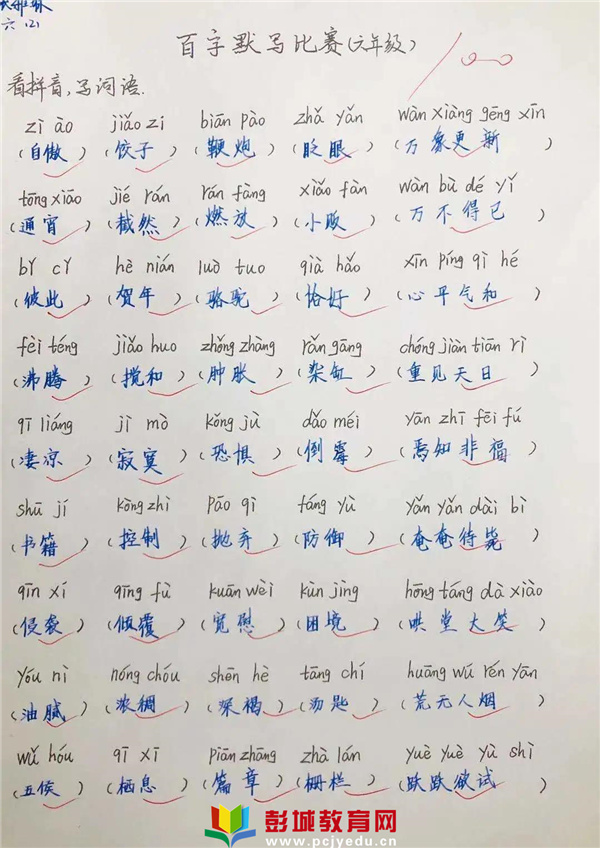 六(2)
百字默写比赛(六年级)
100
看拼音,写词语.
zì ào jiǎo zi biān pào zhǎ yǎn wàn xiàng gēng xīn
(自傲) (饺子) (鞭炮) (眨眼) (万象更新)
tōng xiāo jié rán rán fàng xiǎo fàn wàn bù dé yǐ
(通宵) (截然) (燃放) (小贩) (万不得已)
bǐ cǐ hè nián luò tuo qià hǎo xīn píng qì hé
(彼此) (贺年) (骆驼) (恰好) (心平气和)
fèi téng jiǎo huo zhǒng zhàng rǎn gāng chóng jiàn tiān rì
(沸腾) (搅和) (肿胀) (染缸) (重见天日)
qī liáng jì mò kǒng jù dǎo méi yān zhī fēi fú
(凄凉) (寂寞) (恐惧) (倒霉) (焉知非福)
shū jí kòng zhì pāo qì fáng yù yǎn yǎn dài bì
(书籍) (控制) (抛弃) (防御) (奄奄待毙)
qīn xí qīng fù kuān wèi kùn jìng hōng táng dà xiào
(侵袭) (倾覆) (宽慰) (困境) (哄堂大笑)
yóu nì nóng chóu shēn hè tāng chí huāng wú rén yān
(油腻) (浓稠) (深褐) (汤匙) (荒无人烟)
wǔ hóu qī xī piān zhāng zhà lán yuè yuè yù shì
(五侯) (栖息) (篇章) (栅栏) (跃跃欲试)
彭城教育网
www.pcjyedu.cn